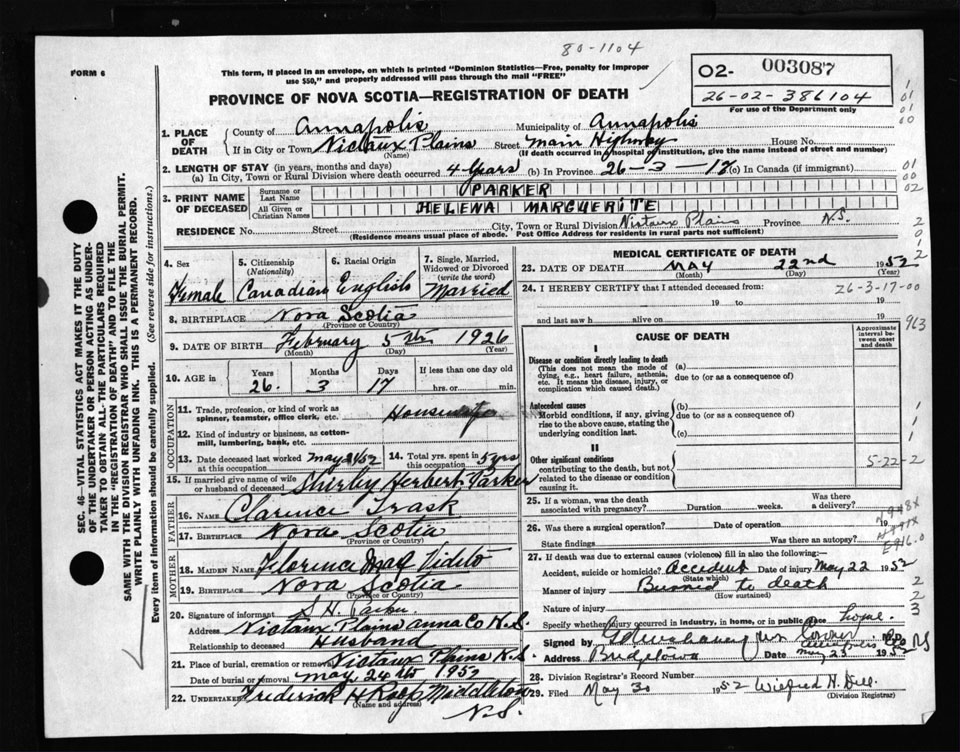 80-1104
FORM 6
This form, if placed in an envelope, on which is printed "Dominion Statistics—Free, penalty for improper
use $50," and properly addressed will pass through the mail "FREE"
02- 003087
26-02-386104
For use of the Department only
PROVINCE OF NOVA SCOTIA—REGISTRATION OF DEATH
1. PLACE OF DEATH
County of Annapolis Municipality of Annapolis
If in City or Town Nictaux Plains Street Main Highway House No.
(Name) (If death occurred in hospital or institution, give the name instead of street and number)
2. LENGTH OF STAY (in years, months and days)
(a) In City, Town or Rural Division where death occurred 4 Years (b) In Province 26-3-17 (c) In Canada (if immigrant)
3. PRINT NAME OF DECEASED
Surname or Last Name PARKER
All Given or Christian Names HELENA MARGUERITE
RESIDENCE No. Street City, Town or Rural Division Nictaux Plains Province N.S.
(Residence means usual place of abode. Post Office Address for residents in rural parts not sufficient)
4. Sex
Female
5. Citizenship
(Nationality)
Canadian
6. Racial Origin
English
7. Single, Married, Widowed or Divorced
(write the word)
Married
8. BIRTHPLACE Nova Scotia
(Province or Country)
9. DATE OF BIRTH February 5th 1926
(Month) (Day) (Year)
10. AGE in Years Months Days If less than one day old
26 3 17 hrs. or min.
OCCUPATION
11. Trade, profession, or kind of work as
spinner, teamster, office clerk, etc. Housewife
12. Kind of industry or business, as cotton-
mill, lumbering, bank, etc.
13. Date deceased last worked at this occupation May 21/52
14. Total yrs. spent in this occupation 5 yrs
15. If married give name of wife
or husband of deceased Shirley Herbert Parker
FATHER
16. NAME Clarence Trask
17. BIRTHPLACE Nova Scotia
(Province or Country)
MOTHER
18. MAIDEN NAME Florence Mae Vidito
19. BIRTHPLACE Nova Scotia
(Province or Country)
20. Signature of informant S.H. Parker
Address Nictaux Plains Anna Co N.S.
Relationship to deceased Husband
21. Place of burial, cremation or removal Nictaux Plains N.S.
Date of burial or removal May 24th 1952
22. UNDERTAKER Frederick H Roop Middleton
(Name and address) N.S.
MEDICAL CERTIFICATE OF DEATH
23. DATE OF DEATH May 22nd 1952
(Month) (Day) (Year)
24. I HEREBY CERTIFY that I attended deceased from: 26-3-17-00
19 to 19
and last saw h alive on 19 963
CAUSE OF DEATH
Approximate interval between onset and death
I
Disease or condition directly leading to death
(This does not mean the mode of
dying, e.g., heart failure, asthenia,
etc. It means the disease, injury, or
complication which caused death.)
(a)
due to (or as a consequence of)
Antecedent causes
Morbid conditions, if any, giving
rise to the above cause, stating the
underlying condition last.
(b)
due to (or as a consequence of)
(c)
II
Other significant conditions
contributing to the death, but not
related to the disease or condition
causing it
5-22-2
25. If a woman, was the death
associated with pregnancy? Duration weeks. Was there a delivery?
26. Was there a surgical operation? Date of operation 19
State findings Was there an autopsy?
E916.0
27. If death was due to external causes (violence) fill in also the following:—
Accident, suicide or homicide? Accident Date of injury May 22 1952
(State which)
Manner of injury Burned to death
(How sustained)
Nature of injury
Specify whether injury occurred in industry, in home, or in public place home.
Signed by Coroner
Address Bridgetown Date May 23 1952
28. Division Registrar's Record Number
29. Filed May 30 1952 Wilfred H. Dill
(Division Registrar)
SEC. 46—VITAL STATISTICS ACT MAKES IT THE DUTY
OF THE UNDERTAKER OR PERSON ACTING AS UNDER-
TAKER TO OBTAIN ALL THE PARTICULARS REQUIRED
IN THE "REGISTRATION OF DEATH" AND TO FILE THE
SAME WITH THE DIVISION REGISTRAR WHO SHALL ISSUE THE BURIAL PERMIT.
WRITE PLAINLY WITH UNFADING INK. THIS IS A PERMANENT RECORD.
Every item of information should be carefully supplied. (See reverse side for instructions.)